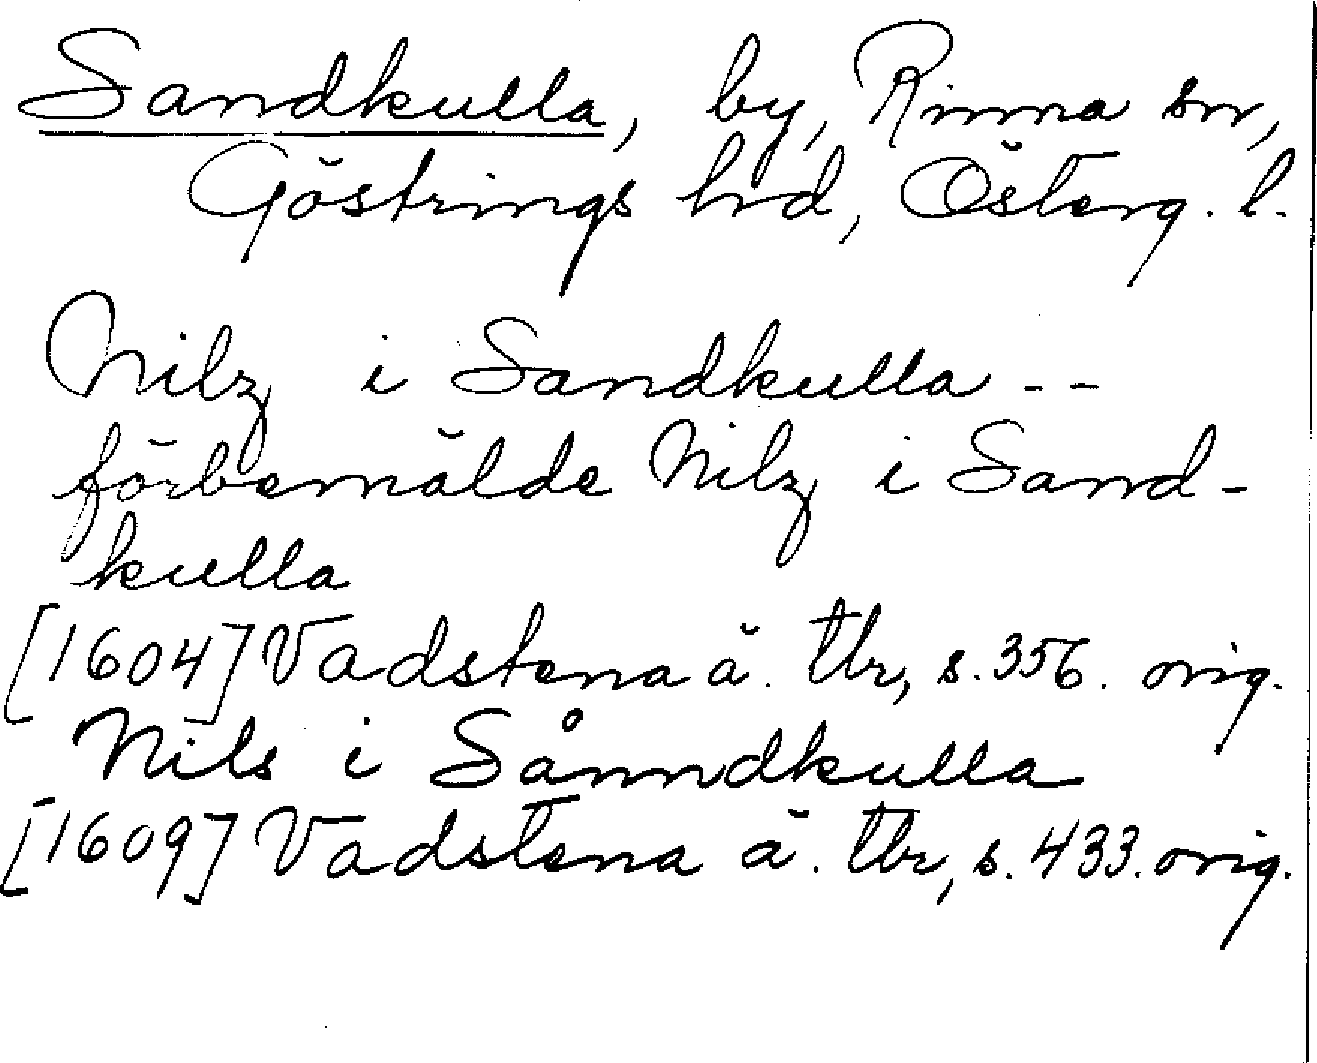 Sandkulla, by, Rinna sn,
Göstrings hrd, Österg. l.
Nilz i Sandkulla --
förbemälde Nilz i Sand-
kulla
[1604] Vadstena ä. tbr, s. 356. orig.
Nils i Sånndkulla
[1609] Vadstena ä. tbr, s. 433. orig.